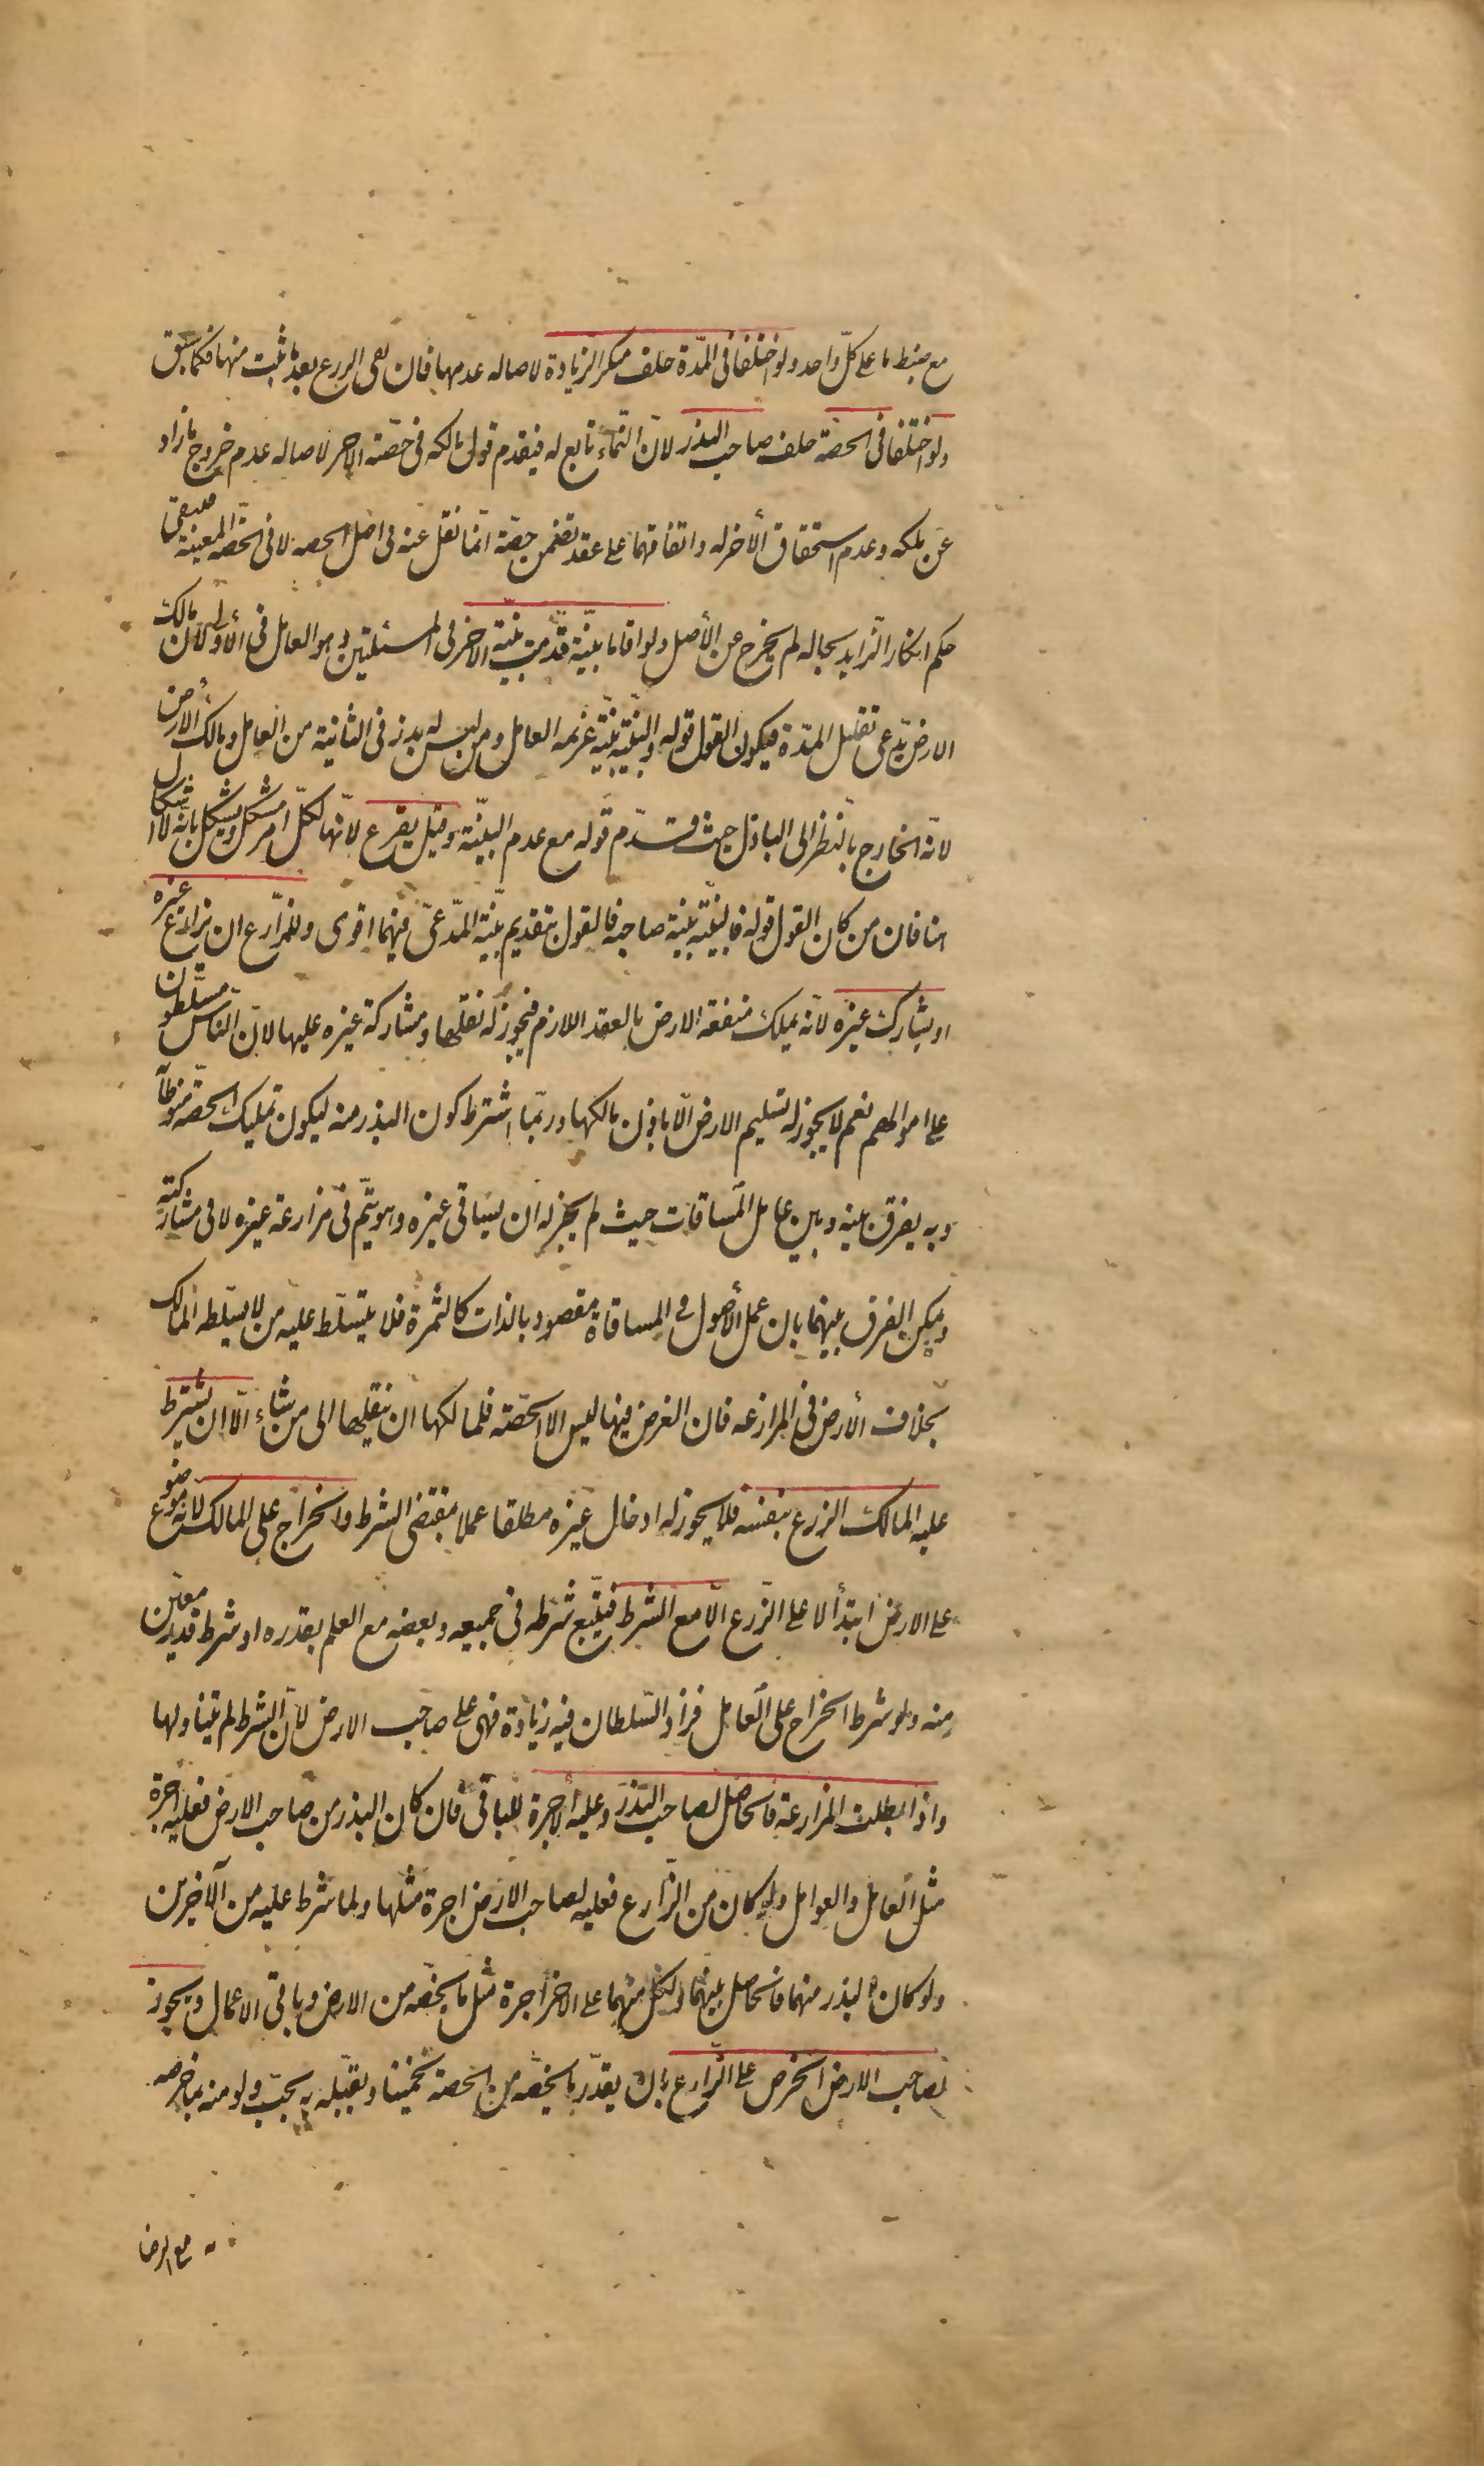 مع ضبط ما على كلّ واحد ولو اختلفا فى المدّة حلف منكر الزيادة لاصاله عدمها فان بقى الزرع بعد ما ثبت منها فكما سبق
ولو اختلفا فى الحصّة حلف صاحب البذر لانّ النّماء تابع له فيقدم قول مالكه فى حصّة الاخر لاصاله عدم خروج ما زاد
عن ملكه وعدم استحقاق الأخر له واتفاقهما على عقد تضمن حصّة انّما نقل عنه فى اصل الحصه لا فى الحصّه المعينة فيبقى
حكم انكار الزايد بحاله لم يخرج عن الأصل ولو اقاما بيّنة قدّمت بيّنة الاخر فى المسئلتين وهو العامل فى الأولى لانّ مالك
الارض يدّعى تقليل المدّة فيكون القول قوله والبيّنة بيّنة غريمه العامل ومن ليس له بذر فى الثانية من العامل ومالك الارض
لانّه الخارج بالنظر الى الباذل حيث قدّم قوله مع عدم البيّنة وقيل يقرع لانّها لكلّ امر مشكل ويشكل بانّه لا اشكال
هنا فان من كان القول قوله فالبيّنة بيّنة صاحبه فالقول بتقديم بيّنة المدّعىّ فيهما اقوى وللمزارع ان يزارع غيره
او يشارك غيره لانّه يملك منفعة الارض بالعقد اللازم فيجوز له نقلها ومشاركة غيره عليها لانّ النّاس مسلّطون
على اموالهم نعم لا يجوز له تسليم الارض الّا باذن مالكها وربّما اشترط كون البذر منه ليكون تمليك الحصّه منوطاً
وبه يفرق بينه وبين عامل المساقات حيث لم يجز له ان يساقى غيره وهو يتّم فى مزارعة غيره لا فى مشاركته
ويمكن الفرق بينهما بان عمل الأصول فى المساقاة مقصود بالذات كالثمرة فلا يتسلّط عليه من لا يسلّطه المالك
بخلاف الأرض فى المزارعه فان الغرض فيها ليس الا الحصّة فلمالكها ان ينقلها الى من شاء الّا ان يشترط
عليه المالك الزرع بنفسه فلا يجوز له ادخال غيره مطلقا عملا بمقتضى الشرط والخراج على المالك لانّه موضوع
على الارض ابتدأ لا على الزّرع الّا مع الشرط فيتّبع شرطه فى جميعه وبعضه مع العلم بقدره او شرط قدر معيّن
منه ولو شرط الخراج على العامل فزاد السّلطان فيه زيادة فهى على صاحب الارض لانّ الشرط لم يتناولها
واذا بطلت المزارعة فالحاصل لصاحب البذر وعليه الأجرة للباقى فان كان البذر من صاحب الارض فعليه اجرة
مثل العامل والعوامل ولو كان من الزّارع فعليه لصاحب الارض اجرة مثلها ولما شرط عليه من الآخرين
ولو كان البذر منهما فالحاصل بينهما ولكل منهما على الاخر اجرة مثل ما يخصّه من الارض وباقى الاعمال ويجوز
لصاحب الارض الخرص على الزّارع بان يقدّر ما يخصّه من الحصة تخمينا ويقبّله به بحبّ ولو منه بما خرصه
مع الرضا